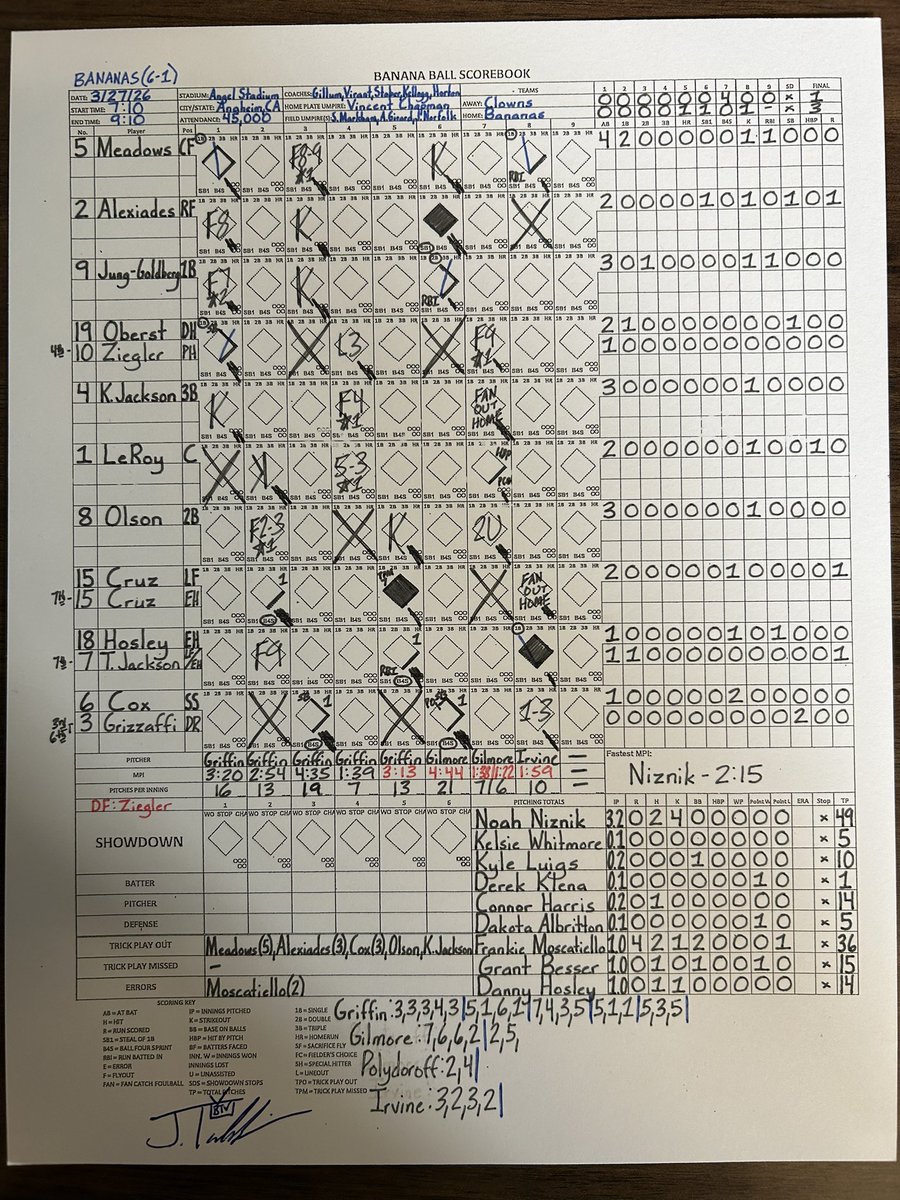 BANANAS (6-1)
BANANA BALL SCOREBOOK
DATE: 3/27/26 STADIUM: Angel Stadium COACHES: Gillum, Virant, Stoner, Kellogg, Horton TEAMS 1 2 3 4 5 6 7 8 9 SD FINAL
START TIME: 7:10 CITY/STATE: Anaheim, CA HOME PLATE UMPIRE: Vincent Chapman AWAY: Clowns 0 0 0 0 0 4 0 0 x 1
END TIME: 9:10 ATTENDANCE: 45,000 FIELD UMPIRE(S): S. Markham, A. Girard, P. Norfolk HOME: Bananas 0 0 0 0 2 1 0 1 - x 3
No. Player Pos 1 2 3 4 5 6 7 8 9 AB 1B 2B 3B HR SB1 B4S K RBI SB HBP R
5 Meadows CF F8-9 #1 K RBI 4 2 0 0 0 0 0 1 1 0 0 0
2 Alexiades RF F8 K 2 0 0 0 0 1 0 1 0 1 0 1
9 Jung-Goldberg 1B F7 #2 K RBI 3 0 1 0 0 0 0 1 1 0 0 0
19 Oberst DH 2 1 0 0 0 0 0 0 0 1 0 0
4th- 10 Ziegler PH L3 F9 #1 1 0 0 0 0 0 0 0 0 0 0 0
4 K.Jackson 3B K F4 #1 FAN OUT HOME 3 0 0 0 0 0 0 1 0 0 0 0
1 LeRoy C K 5-3 #1 HBP 2 0 0 0 0 0 0 1 0 0 1 0
8 Olson 2B F2-3 #1 K 2U 3 0 0 0 0 0 0 1 0 0 0 0
15 Cruz LF 1 FAN OUT HOME 2 0 0 0 0 0 1 0 0 0 0 1
15 Cruz EH
18 Hosley EH F9 1 RBI 1 0 0 0 0 0 1 0 1 0 0 0
7th- 7 T.Jackson 1 1 0 0 0 0 0 0 0 0 0 1
6 Cox SS SB 1 1 1-3 1 0 0 0 0 0 2 0 0 0 0 0
3 Grizzaffi DR 0 0 0 0 0 0 0 0 0 2 0 0
PITCHER Griffin Griffin Griffin Griffin Griffin Gilmore Gilmore Irvine — Fastest MPI:
MPI 3:20 2:54 4:35 1:39 3:13 4:44 1:38/1:22 1:59 — Niznik - 2:15
PITCHES PER INNING 16 13 19 7 13 21 7/6 10 —
DF: Ziegler 1 2 3 4 5 6 PITCHING TOTALS IP R H K BB HBP WP Point W Point L ERA Stop TP
SHOWDOWN
Noah Niznik 3.2 0 2 4 0 0 0 0 0 x 49
Kelsie Whitmore 0.1 0 0 0 0 0 0 0 0 x 5
Kyle Luigs 0.2 0 0 0 1 0 0 0 0 x 10
BATTER Derek Klena 0.1 0 0 0 0 0 0 1 0 x 1
PITCHER Connor Harris 0.2 0 1 0 0 0 0 0 0 x 14
DEFENSE Dakota Albritton 0.1 0 0 0 0 0 0 1 0 x 5
TRICK PLAY OUT Meadows(5), Alexiades(3), Cox(3), Olson, K.Jackson Frankie Moscatiello 1.0 4 2 1 2 0 0 0 1 x 36
TRICK PLAY MISSED - Grant Besser 1.0 0 1 0 1 0 0 1 0 x 15
ERRORS Moscatiello(2) Danny Hosley 1.0 0 1 1 0 0 0 0 0 x 14
SCORING KEY
AB = AT BAT
H = HIT
R = RUN SCORED
SB1 = STEAL OF 1B
B4S = BALL FOUR SPRINT
RBI = RUN BATTED IN
E = ERROR
F = FLYOUT
FAN = FAN CATCH FOULBALL
IP = INNINGS PITCHED
K = STRIKEOUT
BB = BASE ON BALLS
HBP = HIT BY PITCH
BF = BATTERS FACED
INN. W = INNINGS WON
INNINGS LOST
U = UNASSISTED
SDS = SHOWDOWN STOPS
TP = TOTAL PITCHES
1B = SINGLE
2B = DOUBLE
3B = TRIPLE
HR = HOMERUN
SF = SACRIFICE FLY
FC = FIELDER'S CHOICE
SH = SPECIAL HITTER
L = LINEOUT
TPO = TRICK PLAY OUT
TPM = TRICK PLAY MISSED
Griffin: 3,3,3,4,3|5,1,6,1|7,4,3,5|5,1,1|5,3,5|
Gilmore: 7,6,6,2|2,5,
Polydoroff: 2,4|
Irvine: 3,2,3,2|
BTV